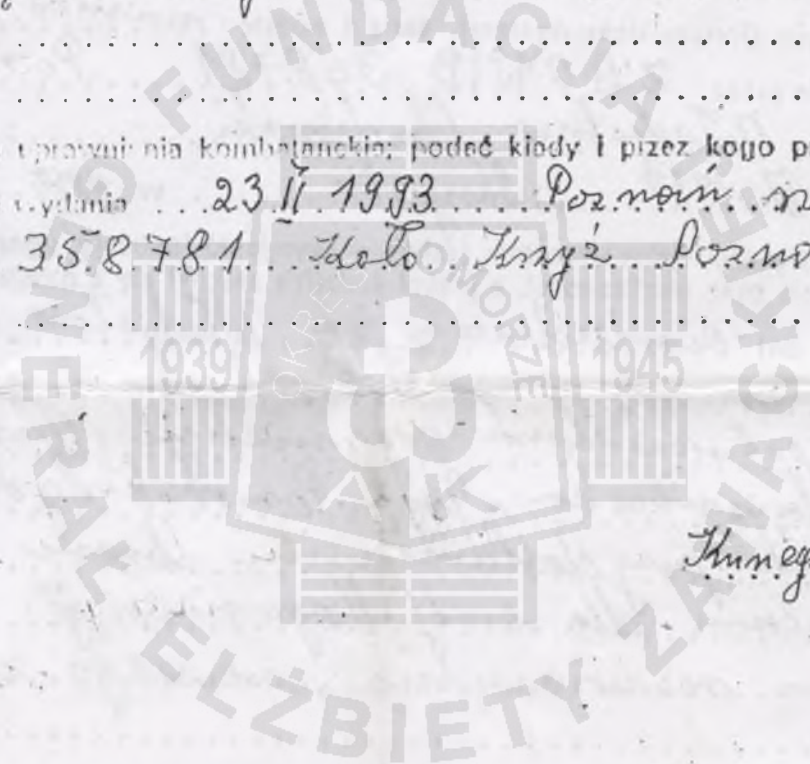 uprawnienia kombatanckie; podać kiedy i przez kogo p
wydania 23 II 1993 Poznań
358781 Koło Krzyż Pozna
Kuneg
FUNDACJA GENERAŁ ELŻBIETY ZAWACKIEJ
OKRĘG POMORZE
1939
1945
AK